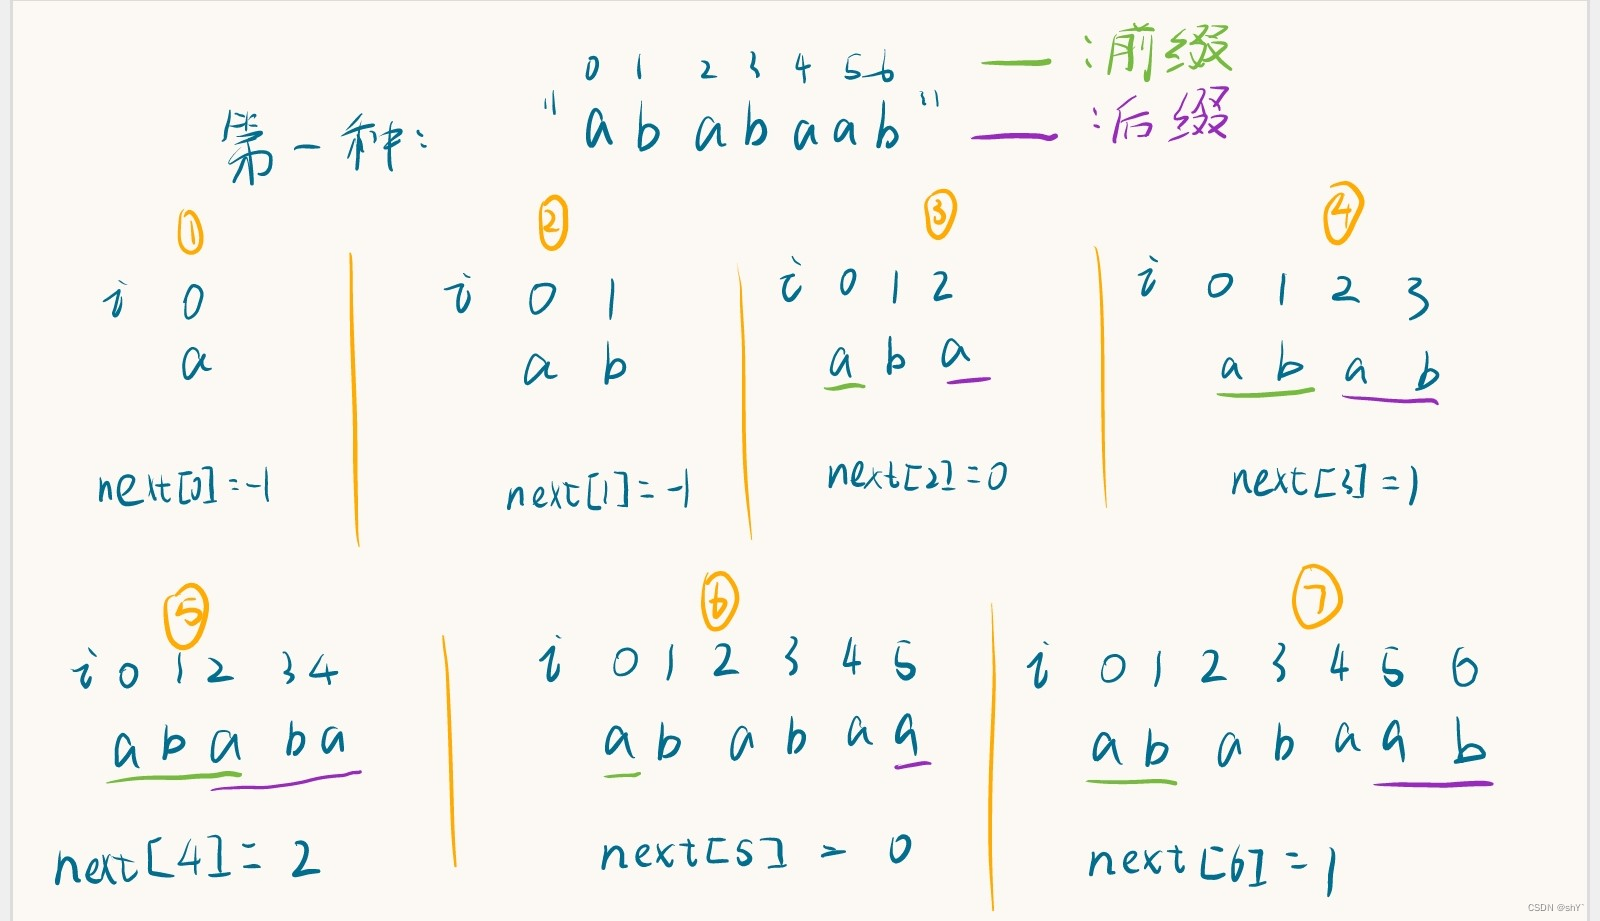 0 1 2 3 4 5 6
第一种: "a b a b a a b"
— :前缀
— :后缀
①
i 0
a
next[0]=-1
②
i 0 1
a b
next[1]=-1
③
i 0 1 2
a b a
next[2]=0
④
i 0 1 2 3
a b a b
next[3]=1
⑤
i 0 1 2 3 4
a b a b a
next[4]=2
⑥
i 0 1 2 3 4 5
a b a b a a
next[5]=0
⑦
i 0 1 2 3 4 5 6
a b a b a a b
next[6]=1
CSDN @shY